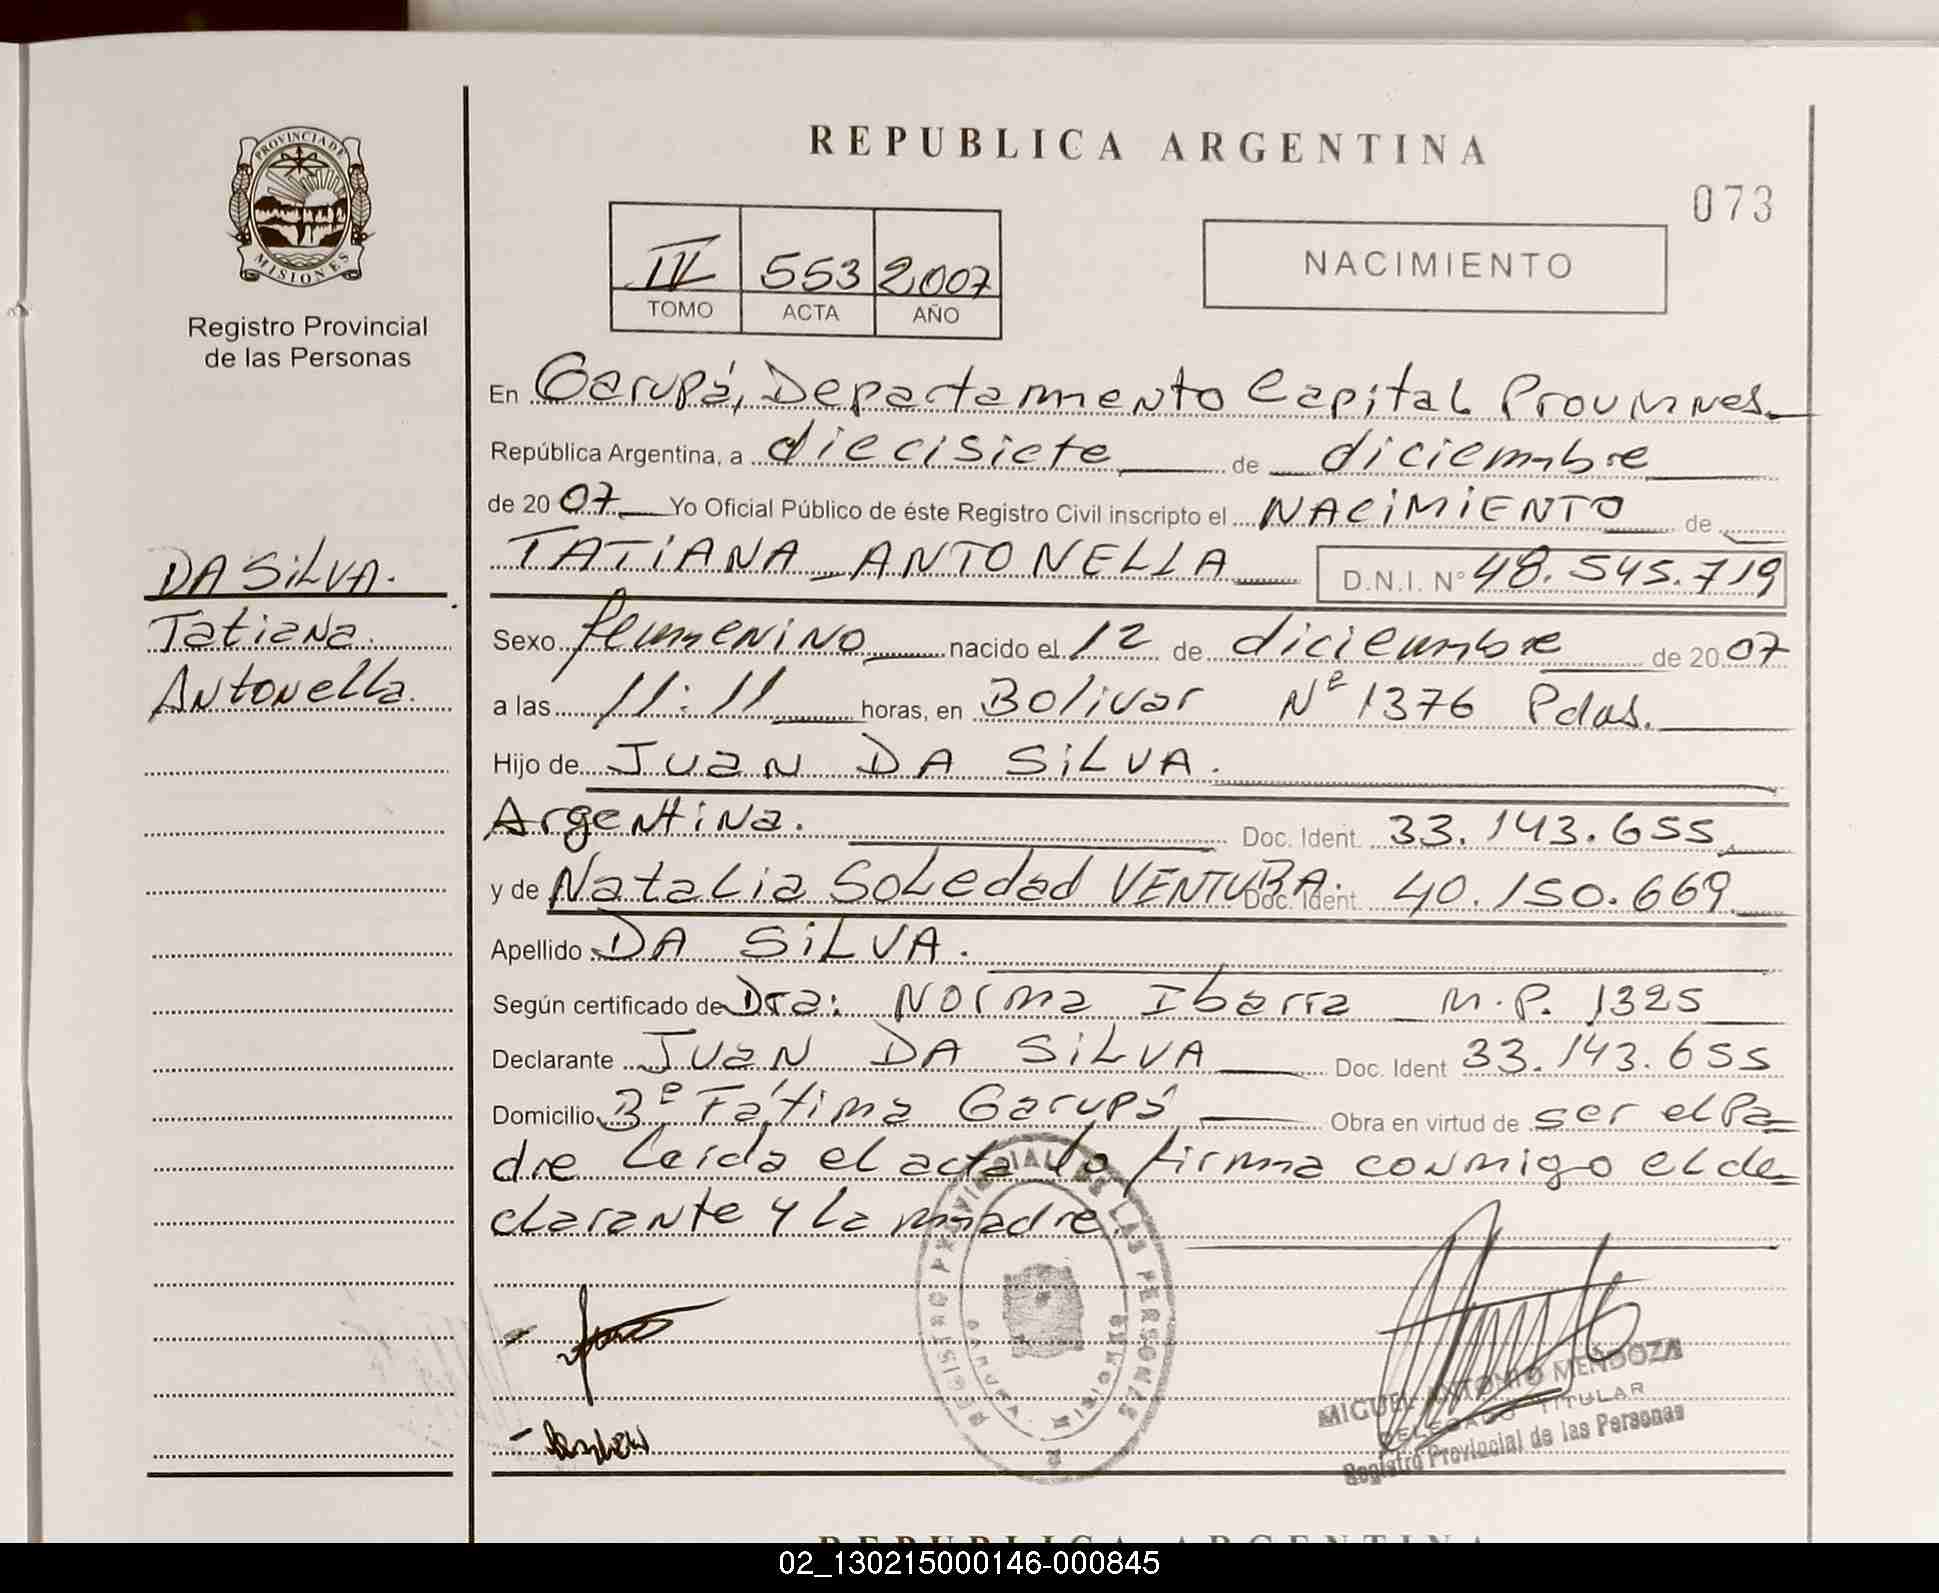 REPUBLICA ARGENTINA
073
PROVINCIA DE
MISIONES
Registro Provincial
de las Personas
IV 553 2007
TOMO ACTA AÑO
NACIMIENTO
En Garupá, Departamento Capital
República Argentina, a diecisiete de diciembre
de 2007 Yo Oficial Público de éste Registro Civil inscripto el NACIMIENTO de
TATIANA ANTONELLA D.N.I. N° 48.545.719
DA SILVA.
Tatiana
Antonella.
Sexo femenino nacido el 12 de diciembre de 2007
a las 11:11 horas, en Bolivar Nº 1376 Pdas.
Hijo de Juan DA SILVA.
Argentina. Doc. Ident. 33.143.655
y de Natalia Soledad VENTURA. Doc. Ident. 40.150.669
Apellido DA SILVA.
Según certificado de Dra: Norma Ibarra M.P. 1325
Declarante Juan DA SILVA Doc. Ident 33.143.655
Domicilio Bº Fátima Garupá Obra en virtud de ser el Pa=
dre Leida el acta la firma conmigo el de=
clarante y la madre.
REGISTRO PROVINCIAL DE LAS PERSONAS
MIGUEL ANTONIO MENDOZA
DELEGADO TITULAR
Registro Provincial de las Personas
REPUBLICA ARGENTINA
02_130215000146-000845